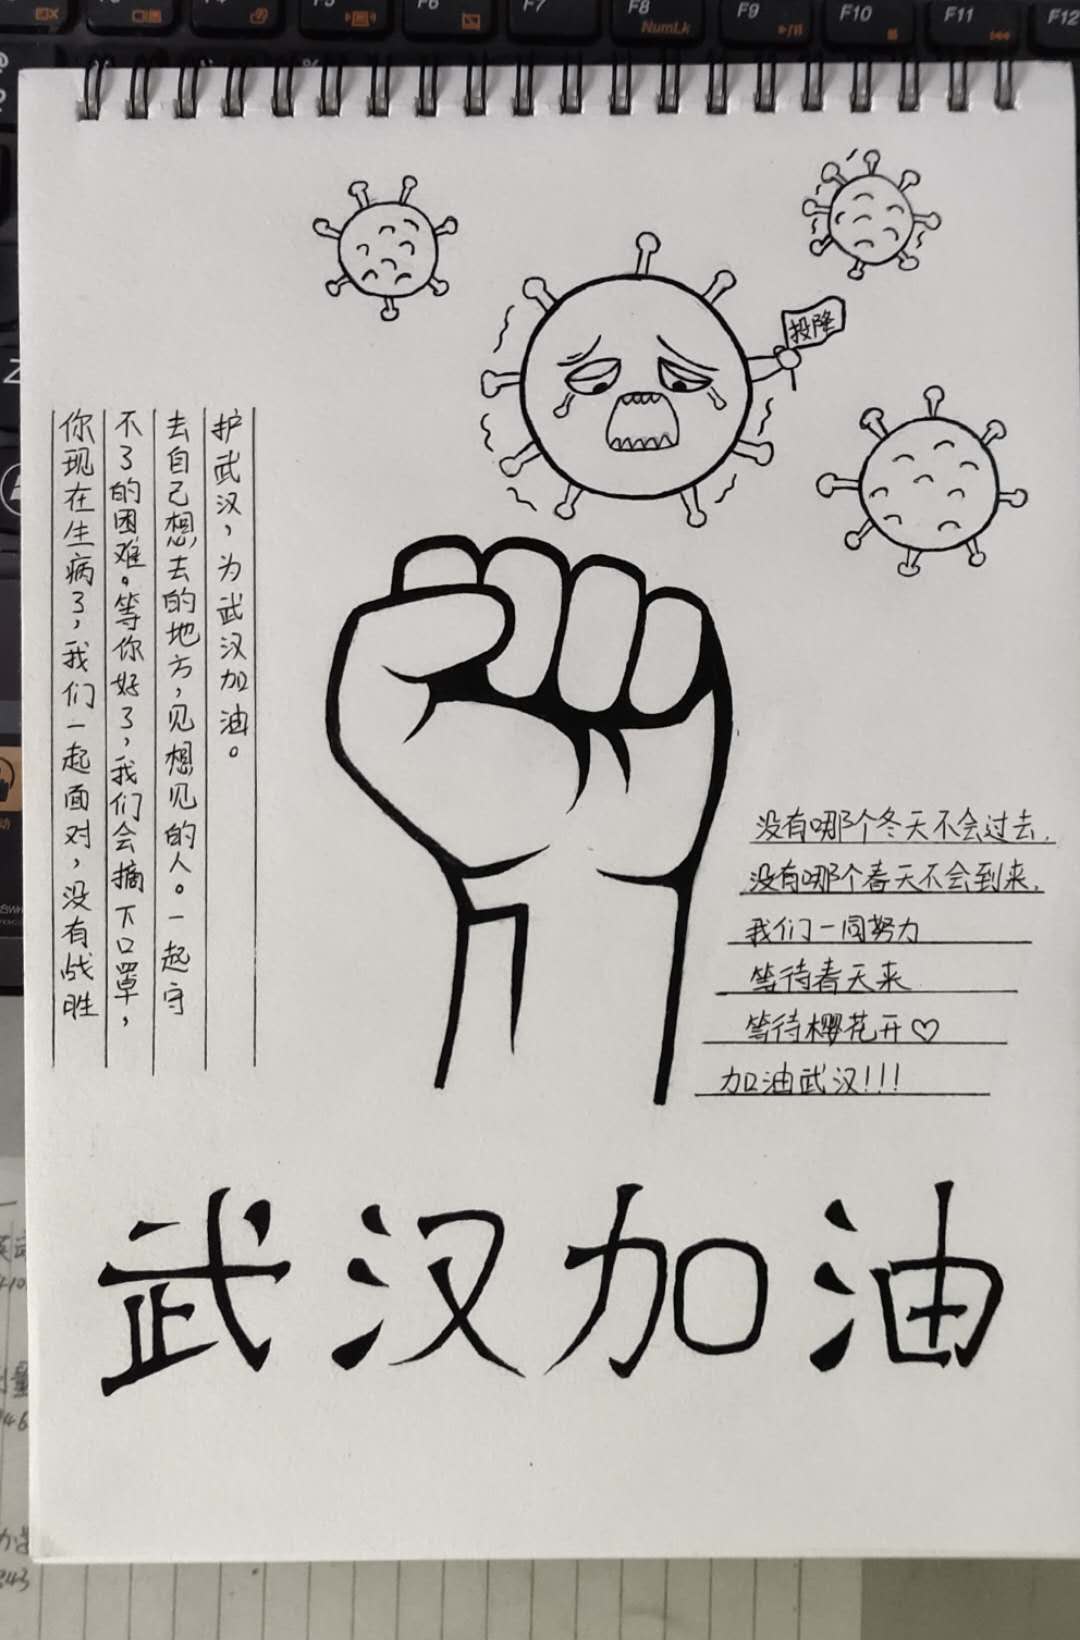 F5 F6 F7 F8 F9 F10 F11 F12
NumLk
投降
你现在生病了，我们一起面对，没有战胜
不了的困难。等你好了，我们会摘下口罩，
去自己想去的地方，见想见的人。一起守
护武汉，为武汉加油。
没有哪个冬天不会过去.
没有哪个春天不会到来.
我们一同努力
等待春天来
等待樱花开♡
加油武汉!!!
武汉加油